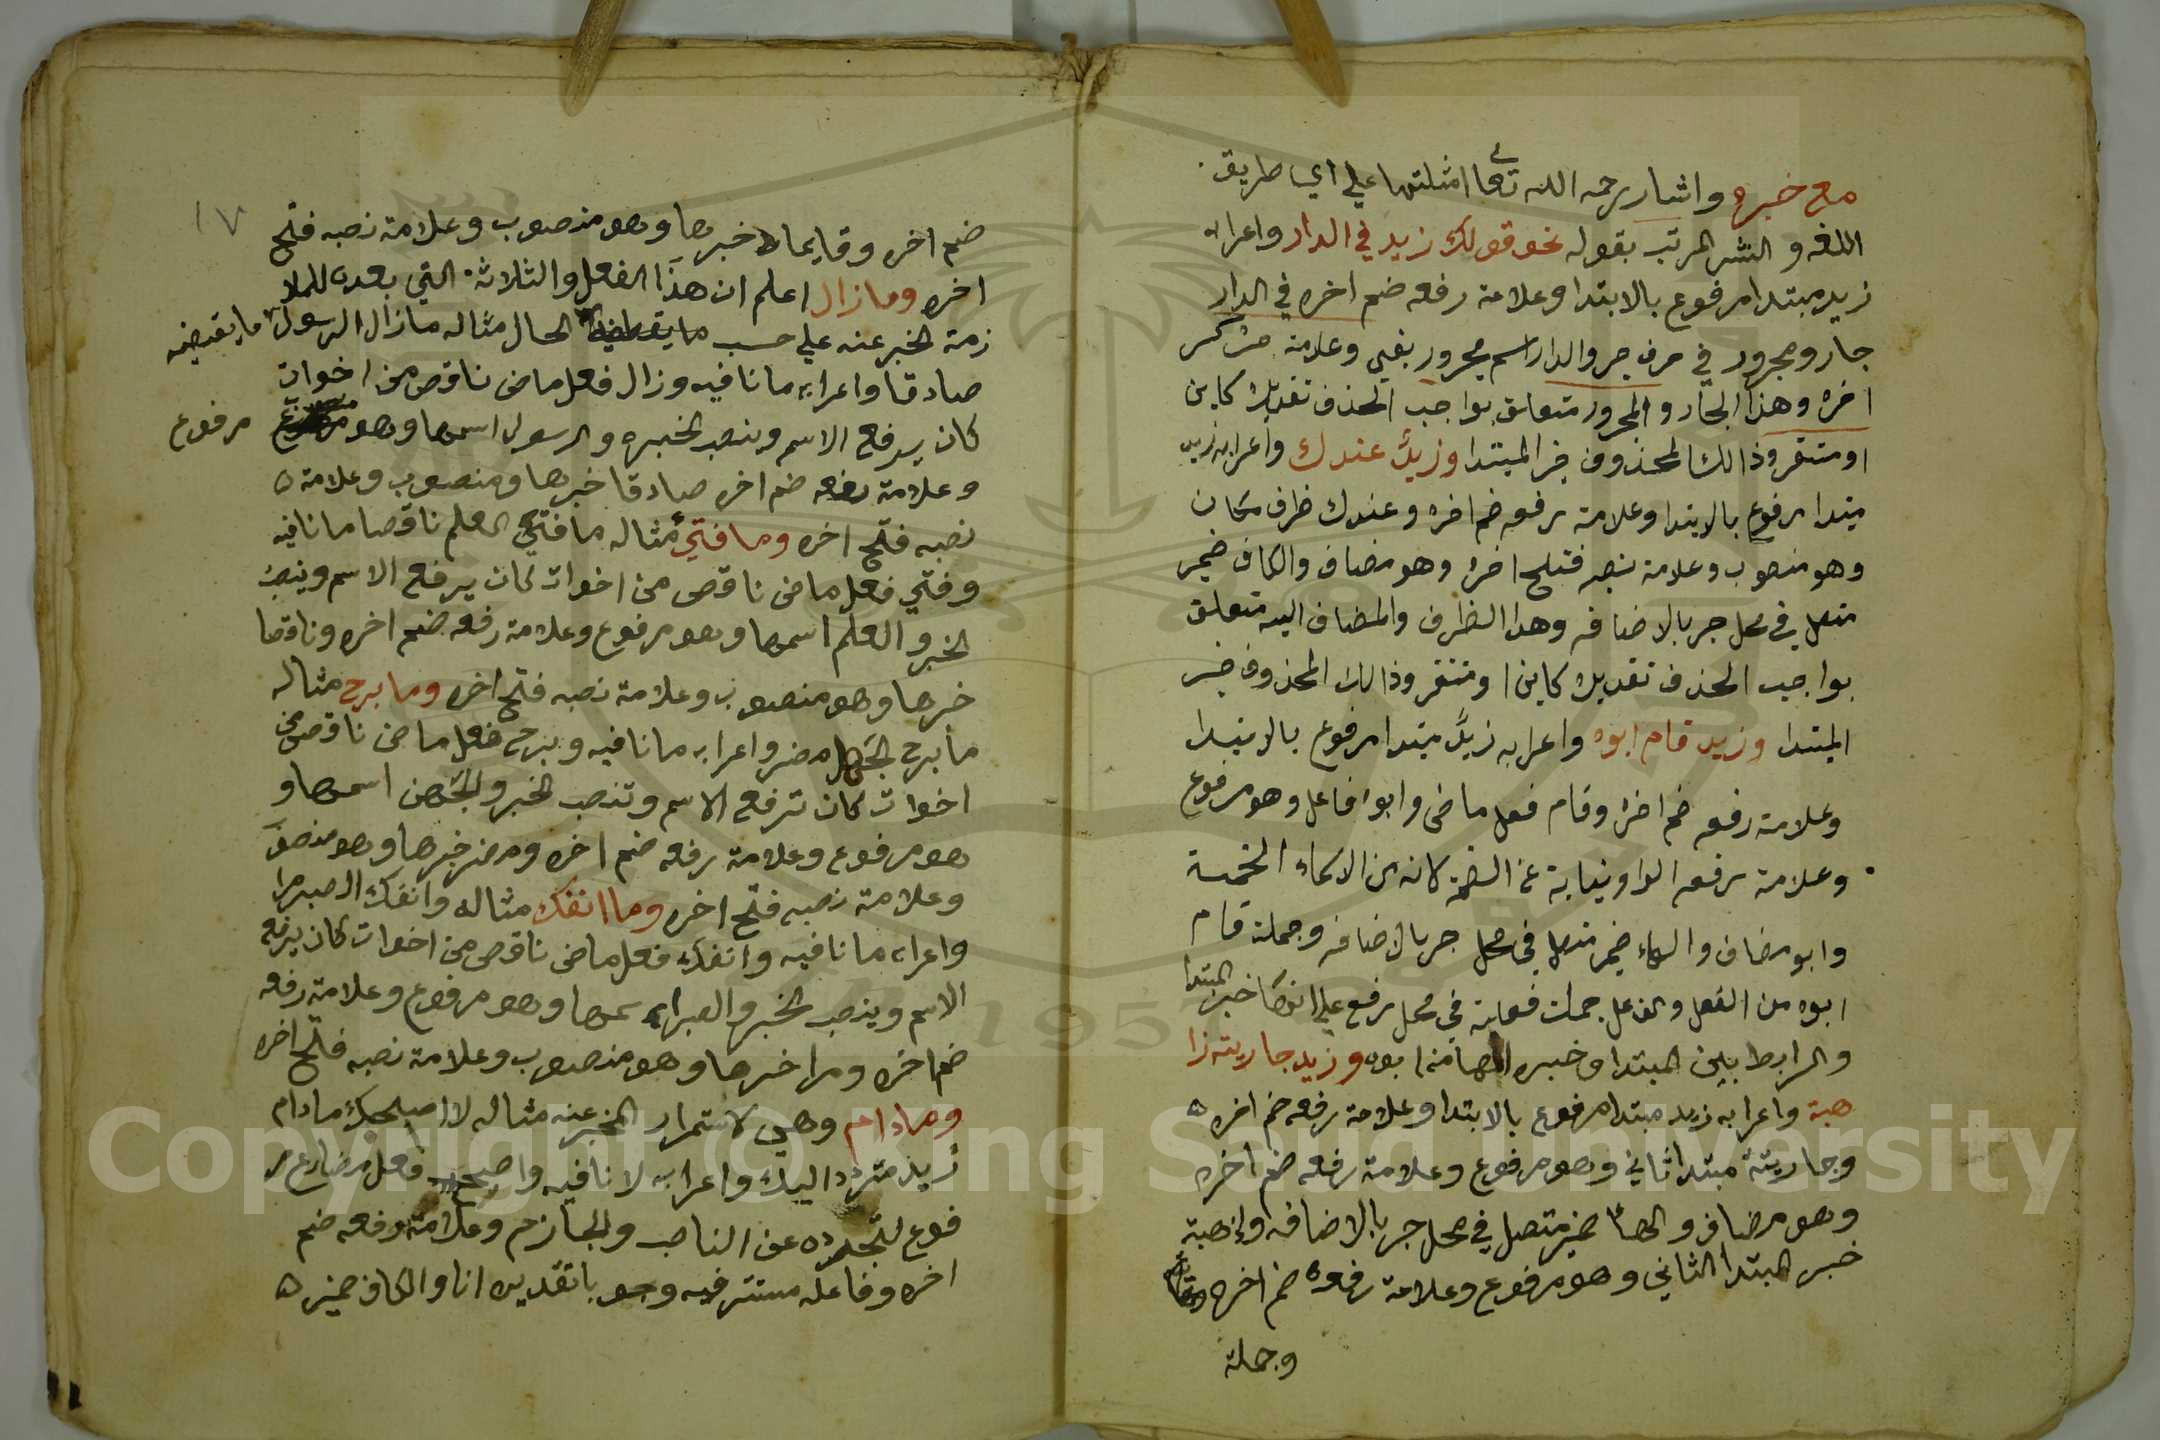 مع خبره واشار رحمه الله تعالى امثلتها علي اي طريق
اللف و النشر المرتب بقوله نحو قولك زيد في الدار واعرابه
زيد مبتدا مرفوع بالابتدا وعلامة رفعه ضم اخره في الدار
جار ومجرور في حرف جر والدار اسم مجرور بفي وعلامة جره كسر
اخره وهذا الجار والمجرور متعلق بواجب الحذف تقديره كاين
او مستقر وذالك المحذوف خبر المبتدا وزيدٌ عندك واعرابه زيد
مبتدا مرفوع بالابتدا وعلامة رفعه ضم اخره وعندك ظرف مكان
وهو منصوب وعلامة نصبه فتح اخره وهو مضاف والكاف ضمير
متصل في محل جر بالاضافه وهذا الظرف والمضاف اليه متعلق
بواجب الحذف تقديره كاين او مستقر وذالك المحذوف خبر
المبتدا وزيد قام ابوه واعرابه زيدٌ مبتدا مرفوع بالابتدا
وعلامة رفعه ضم اخره وقام فعل ماضي وابوا فاعل وهو مرفوع
وعلامة رفعه الواو نيابة عن الضمة لانه من الاسماء الخمسة
وابو مضاف والهاء ضمير متصل في محل جر بالاضافه وجملة قام
ابوه من الفعل والفاعل جملت فعلية في محل رفع علي انها خبر المبتدا
والرابط بين المبتدا وخبره الهامن ابوه وزيد جاريته ذا
هبة واعرابه زيد مبتدا مرفوع بالابتدا وعلامة رفعه ضم اخره ه
وجاريتهُ مبتدا ثاني وهو مرفوع وعلامة رفعه ضم اخره
وهو مضاف والهاء ضمير متصل في محل جر بالاضافه وذاهبة
خبر المبتدا الثاني وهو مرفوع وعلامة رفعه ضم اخره
وجملة
١٧
ضم اخره وقايما خبرها وهو منصوب وعلامة نصبه فتح
اخره ومازال اعلم ان هذا الفعل والثلاثة التي بعده للملا
زمة الخبر عنه علي حسب ما يقتضيه الحال مثاله مازال الرسول
ما يقتضيه
صادقا واعرابه ما نافيه وزال فعل ماضي ناقص من اخوات
كان يرفع الاسم وينصب الخبره والرسول اسمها وهو مرفوع
وعلامة رفعه ضم اخره صادقا خبرها ومنصوب وعلامة ه
نصبه فتح اخره وما فتيء مثاله ما فتيء العلم ناقصا ما نافيه
وفتي فعل ماضي ناقص من اخوات كان يرفع الاسم وينصب
الخبر والعلم اسمها وهو مرفوع وعلامة رفعه ضم اخره وناقصا
خبرها وهو منصوب وعلامة نصبه فتح اخره وما برح مثاله
ما برح الجهل مضر واعرابه ما نافيه وبرح فعل ماضي ناقص من
اخوات كان ترفع الاسم وتنصب الخبر والجهل اسمها و
هو مرفوع وعلامة رفعه ضم اخره ومضر خبرها وهو منصوب
وعلامة نصبه فتح اخره وما انفك مثاله وانفك الصبر مرا
واعرابه ما نافيه وانفك فعل ماضي ناقص من اخوات كان يرفع
الاسم وينصب الخبر والصبر اسمها وهو مرفوع وعلامة رفعه
ضم اخره ومرا خبرها وهو منصوب وعلامة نصبه فتح اخره
ومادام وهي لاستمرار الخبر عنه مثاله لا اصبحك مادام
زيد متردد اليك واعرابه لا نافيه واصبح فعل مضارع مر
فوع لتجرده عن الناصب والجازم وعلامة رفعه ضم
اخره وفاعله مستتر فيه وجوبا تقديره انا والكاف ضمير ه
Copyright © King Saud University
1957